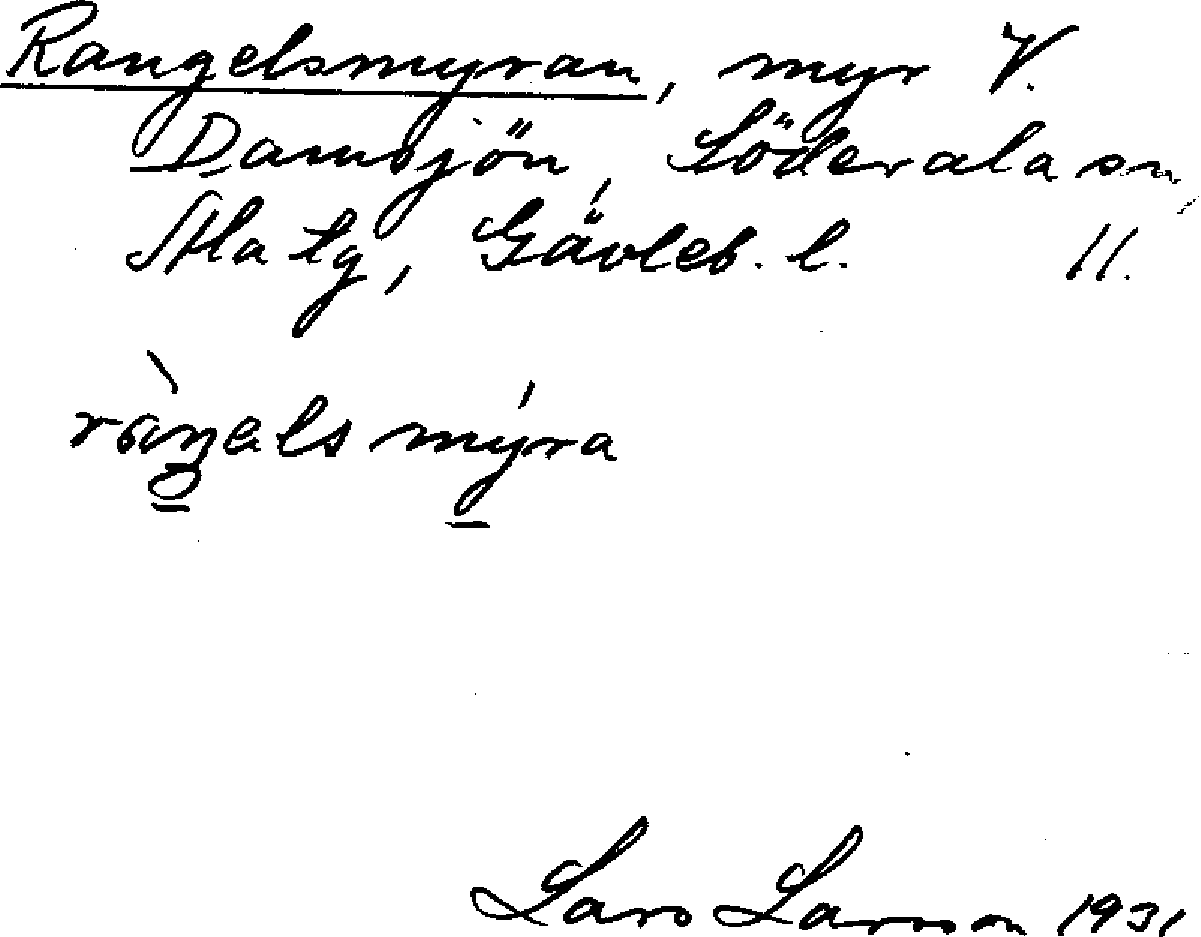 Rangelsmyran, myr V.
Damsjön, Söderala sn,
Ala tg, Gävleb. l. 11.
ràŋels mýra
Lars Larsson 1931